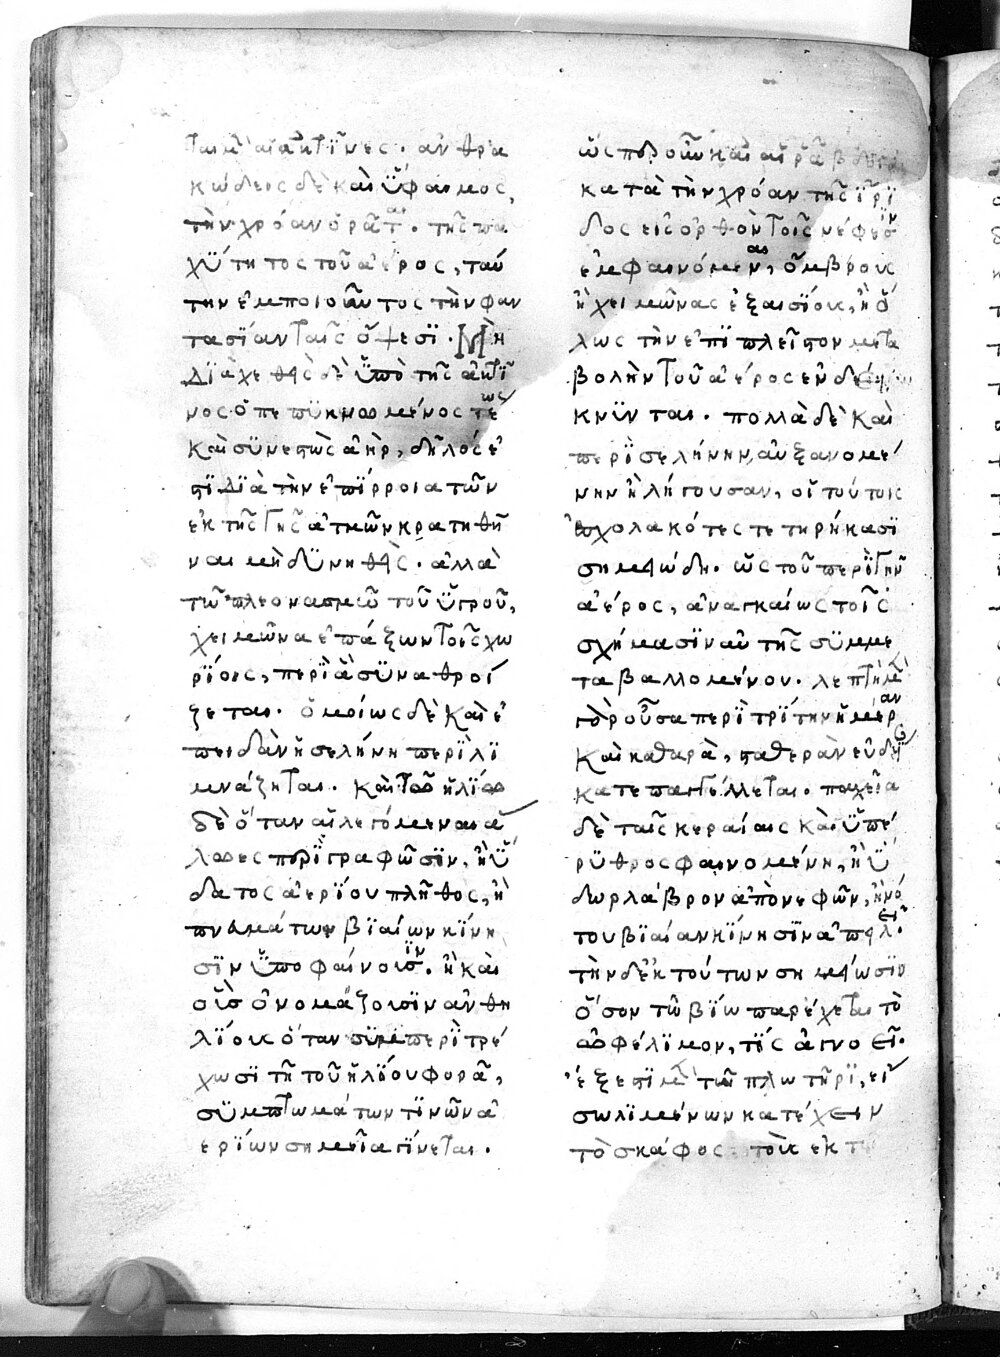 ται μὲν αἱ ἀκτῖνες· ἀνθρα
κώδεις δὲ καὶ ὕφαιμος,
τὴν χρόαν ὁρᾶται· τῆς πα
χύτητος τοῦ ἀέρος, ταύ
την ἐμποιοῦντος τὴν φαν
τασΐαν ταῖς ὄψεσϊ· Μὴ
διαχεθεὶς δὲ ὑπὸ τῆς ἀκτῖ
νος ὁ πεπϋκνωμένος τέως
καὶ συνεστὼς ἀὴρ, δῆλός ἐ
στϊ διὰ τὴν ἐπΐρροια τῶν
ἐκ τῆς γῆς ἀτμῶν κρατηθῆ
ναι μὴ δϋνηθεὶς· ἀλλὰ
τῶ πλεονασμῶ τοῦ ὑγροῦ,
χειμῶνα ἐπάξων τοῖς χω
ρΐοις, περὶ ἃ συναθροί
ζεται· ὁμοίως δὲ καὶ ἐ
πειδὰν ἡ σελήνη περιλϊ
μνάζηται· καὶ τῶ ἡλΐω
δὲ ὅταν αἱ λεγόμεναι ἅ
λωες περϊγραφῶσϊν, ἢ ὕ
δατος ἀερΐου πλῆθος, ἢ
πνευμάτων βϊαίων κΐνη
σϊν ὑποφαίνουσιν· ἢ καὶ
οὓς ὀνομάζουσϊν ἀνθη
λΐους ὅταν συμπερϊτρέ
χωσϊ τῆ τοῦ ἡλΐου φορᾶ,
συμπτωμάτων τϊνῶν ἀ
ερΐων σημεῖα γΐνεται·
ὥσπερ οὖν καὶ αἱ ῥάβδοι
κατὰ τὴν χρόαν τῆς ἴρϊ
δος εἰς ὀρθὸν τοῖς νέφεσϊν
ἐμφαινόμεναι, ὄμβρους
ἢ χειμῶνας ἐξαισΐους, ἢ ὅ
λως τὴν ἐπϊπλεῖστον μετα
βολὴν τοῦ ἀέρος ἐνδει
κνϋνται· πολλὰ δὲ καὶ
περὶ σελήνην, αὐξανομέ
νην ἢ λήγουσαν, οἱ τούτοις
ἐσχολακότες τετηρήκασϊ
σημειώδη· ὡς τοῦ περϊγῆν
ἀέρος, ἀναγκαίως τοῖς
σχήμασϊν αὐτῆς συμμε
ταβαλλομένου· λεπτὴ μὲν
γὰρ οὖσα περὶ τρΐτην ἡμέραν
καὶ καθαρὰ, σταθερὰν εὐδΐαν
κατεπαγγέλλεται· παχεῖα
δὲ ταῖς κεραίαις καὶ ὑπέ
ρϋθρος φαινομένη, ἢ ὕ
δωρ λάβρον ἀπὸ νεφῶν, ἢ νό
του βϊαίαν κΐνησϊν ἀπειλεῖ·
τὴν δ' ἐκ τούτων σημείωσϊν
ὅσον τῶ βΐω παρέχεται τὸ
ὠφέλϊμον, τΐς ἀγνοεῖ·
ἔξεστϊ μὲν τῶ πλωτῆρϊ, εἴ
σω λϊμένων κατέχειν
τὸ σκάφος τοὺς ἐκ